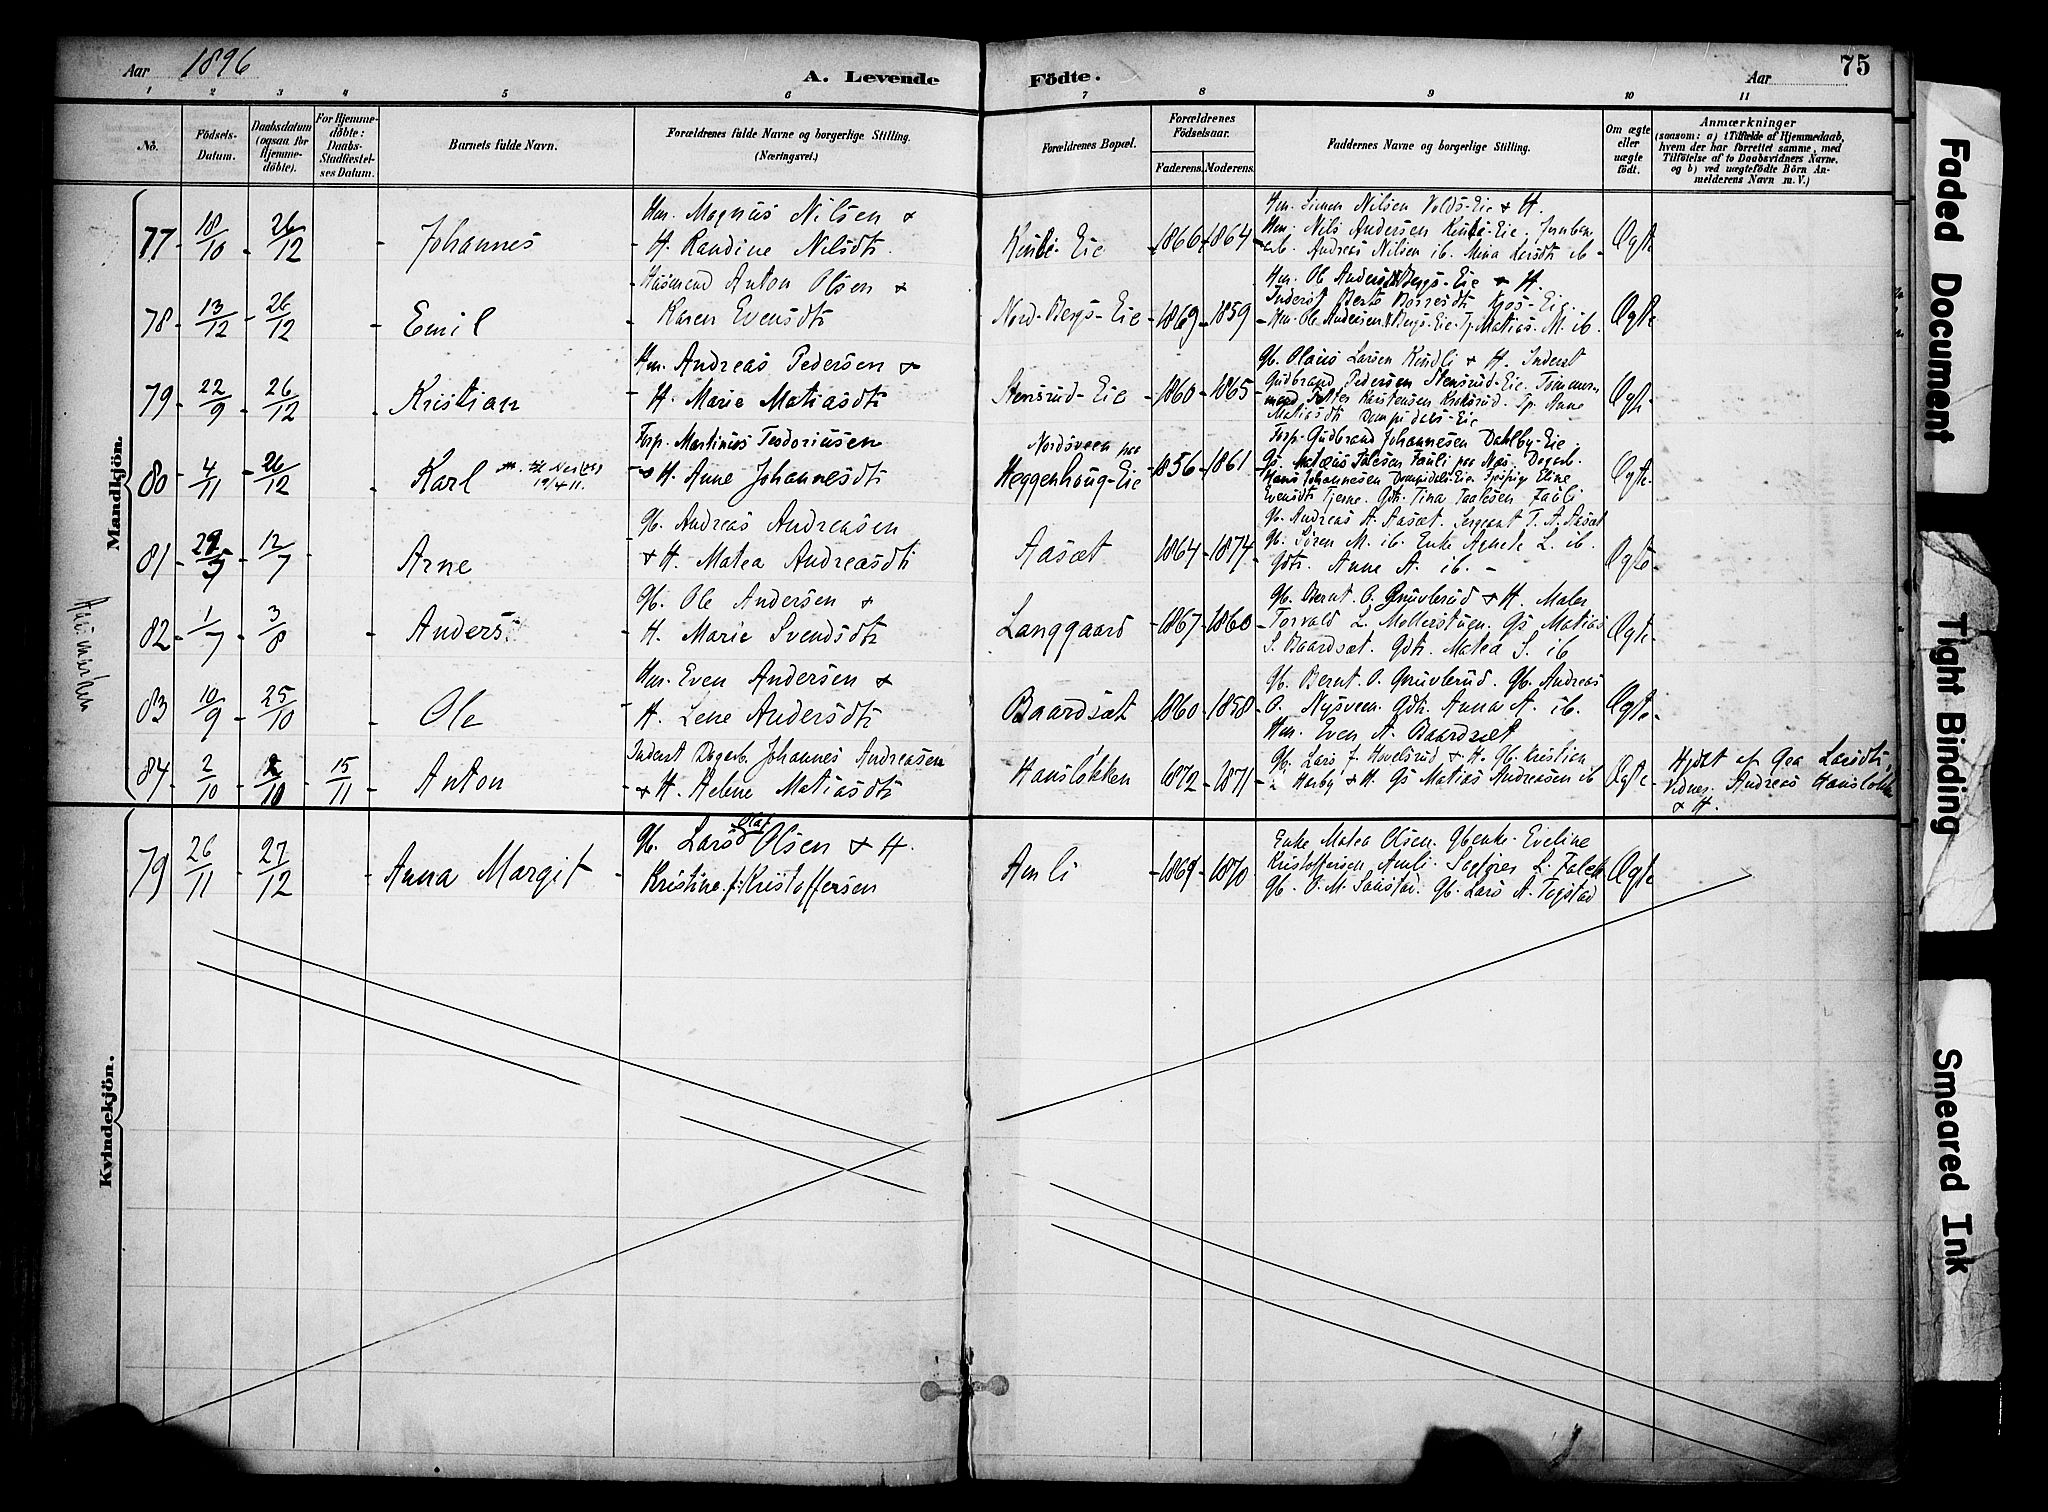 Aar 1896
A. Levende
Födte.
Aar
75
1 2 3 4 5 6 7 8 9 10 11
No.
Födsels-
Datum.
Daabsdatum
(ogsaa for
Hjemme-
döbte).
For Hjemme-
döbte:
Daabs-
Stadfæstel-
ses Datum.
Barnets fulde Navn.
Forældrenes fulde Navne og borgerlige Stilling.
(Næringsvei.)
Forældrenes Bopæl.
Forældrenes
Födselsaar.
Faderens. Moderens.
Faddernes Navne og borgerlige Stilling.
Om ægte
eller
uægte
født.
Anmærkninger
(saasom: a) i Tilfælde af Hjemmedaab,
hvem der har forrettet samme, med
Tilföielse af to Daabsvidners Navne,
og b) ved uægtefödte Börn An-
melderens Navn m. V.)
Mandkjön.
77 18/10 26/12 Johannes
Hm. Magnus Nilsen &
H. Randine Nilsdtr.
Kindli-Eie 1866 1864
Hm. Simen Nilsen Volds-Eie & H.
Hm. Nils Andersen Kindli-Eie. Jernbane-
arb. Andreas Nilsen ib. Mina Larsdtr ib
Ægte
78 13/12 26/12 Emil
Husmand Anton Olsen &
Karen Evensdtr
Nord-Bergs-Eie 1869 1859
Hm. Ole Andersen Bergs-Eie & H.
Inderst Berte Børresdtr Kjos-Eie.
Hm. Ole Andersen Bergs-Eie. Tj. Matias M. ib.
Ægte
79 22/9 26/12 Kristian
Hm. Andreas Pedersen &
H. Marie Matiasdtr
Stensrud-Eie 1860 1865
Gb. Olaus Larsen Kindli & H. Inderst
Gudbrand Pedersen Stensrud-Eie. Tømmer-
mand Petter Karstensen Kroksrud. Tp. Anne
Matiasdtr Dompidals-Eie
Ægte
80 4/11 26/12 Karl
19/4 11.
Forp. Martinus Teodoriusen
& H. Anne Johannesdtr
Nordsveen paa
Heggenhoug-Eie 1856 1861
Forp. Gudbrand Johannesen Dahlby-Eie.
Gs. Matæus Palesen Fauli paa Næs. Dagarb.
Hans Johannesen Dompidals-Eie. Tjpige Eline
Evensdtr Tjerne. Gdtr. Tina Paalesen Fauli
Ægte
81 29/5 12/7 Arne
Gb. Andreas Andreasen
& H. Matea Andreasdtr
Aasæt 1864 1874
Gb. Andreas A. Aasæt. Sergeant T. A. Aasæt
Gb. Søren M. ib. Enke Agnete L. ib.
Gdtr. Anne A. ib.
Ægte
82 1/7 3/8 Anders
Gb. Ole Andersen &
H. Marie Svendsdtr
Langgaard 1867 1860
Gb. Bernt O. Gruvlerud & H. Maler
Torvald L. Mellerstuen. Gs Matias
S. Baardsæt. Gdtr. Matea S. ib
Ægte
83 10/9 25/10 Ole
Hm. Even Andersen &
H. Lene Andersdtr
Baardsæt 1860 1858
Gb. Bernt O. Gruvlerud. Gb. Andreas
O. Nysveen. Gdtr. Anna A. ib.
Hm. Even A. Baardsæt
Ægte
84 2/10 2/10 15/11 Anton
Inderst Dagarb. Johannes Andreasen
& H. Helene Matiasdtr
Hansløkken 1872 1871
Gb. Lars J. Hovelsrud & H. Gb. Kristian
Harby & H. Gs Matias Andreasen ib
Ægte
Hjdøbt af Gea Larsdtr,
Vidner: Andreas Hansløkken
& H.
Kvindekjön.
79 26/11 27/12 Anna Margit
Gb. Lars Olaf Olsen & H.
Kristine f. Kristoffersen
Amli 1869 1870
Enke Matea Olsen. Gbenke Eveline
Kristoffersen Amli. Sagfører L. Falch
Gb. O. M. Saustad. Gb. Lars A. Tojstad
Ægte
Faded Document
Tight Binding
Smeared Ink